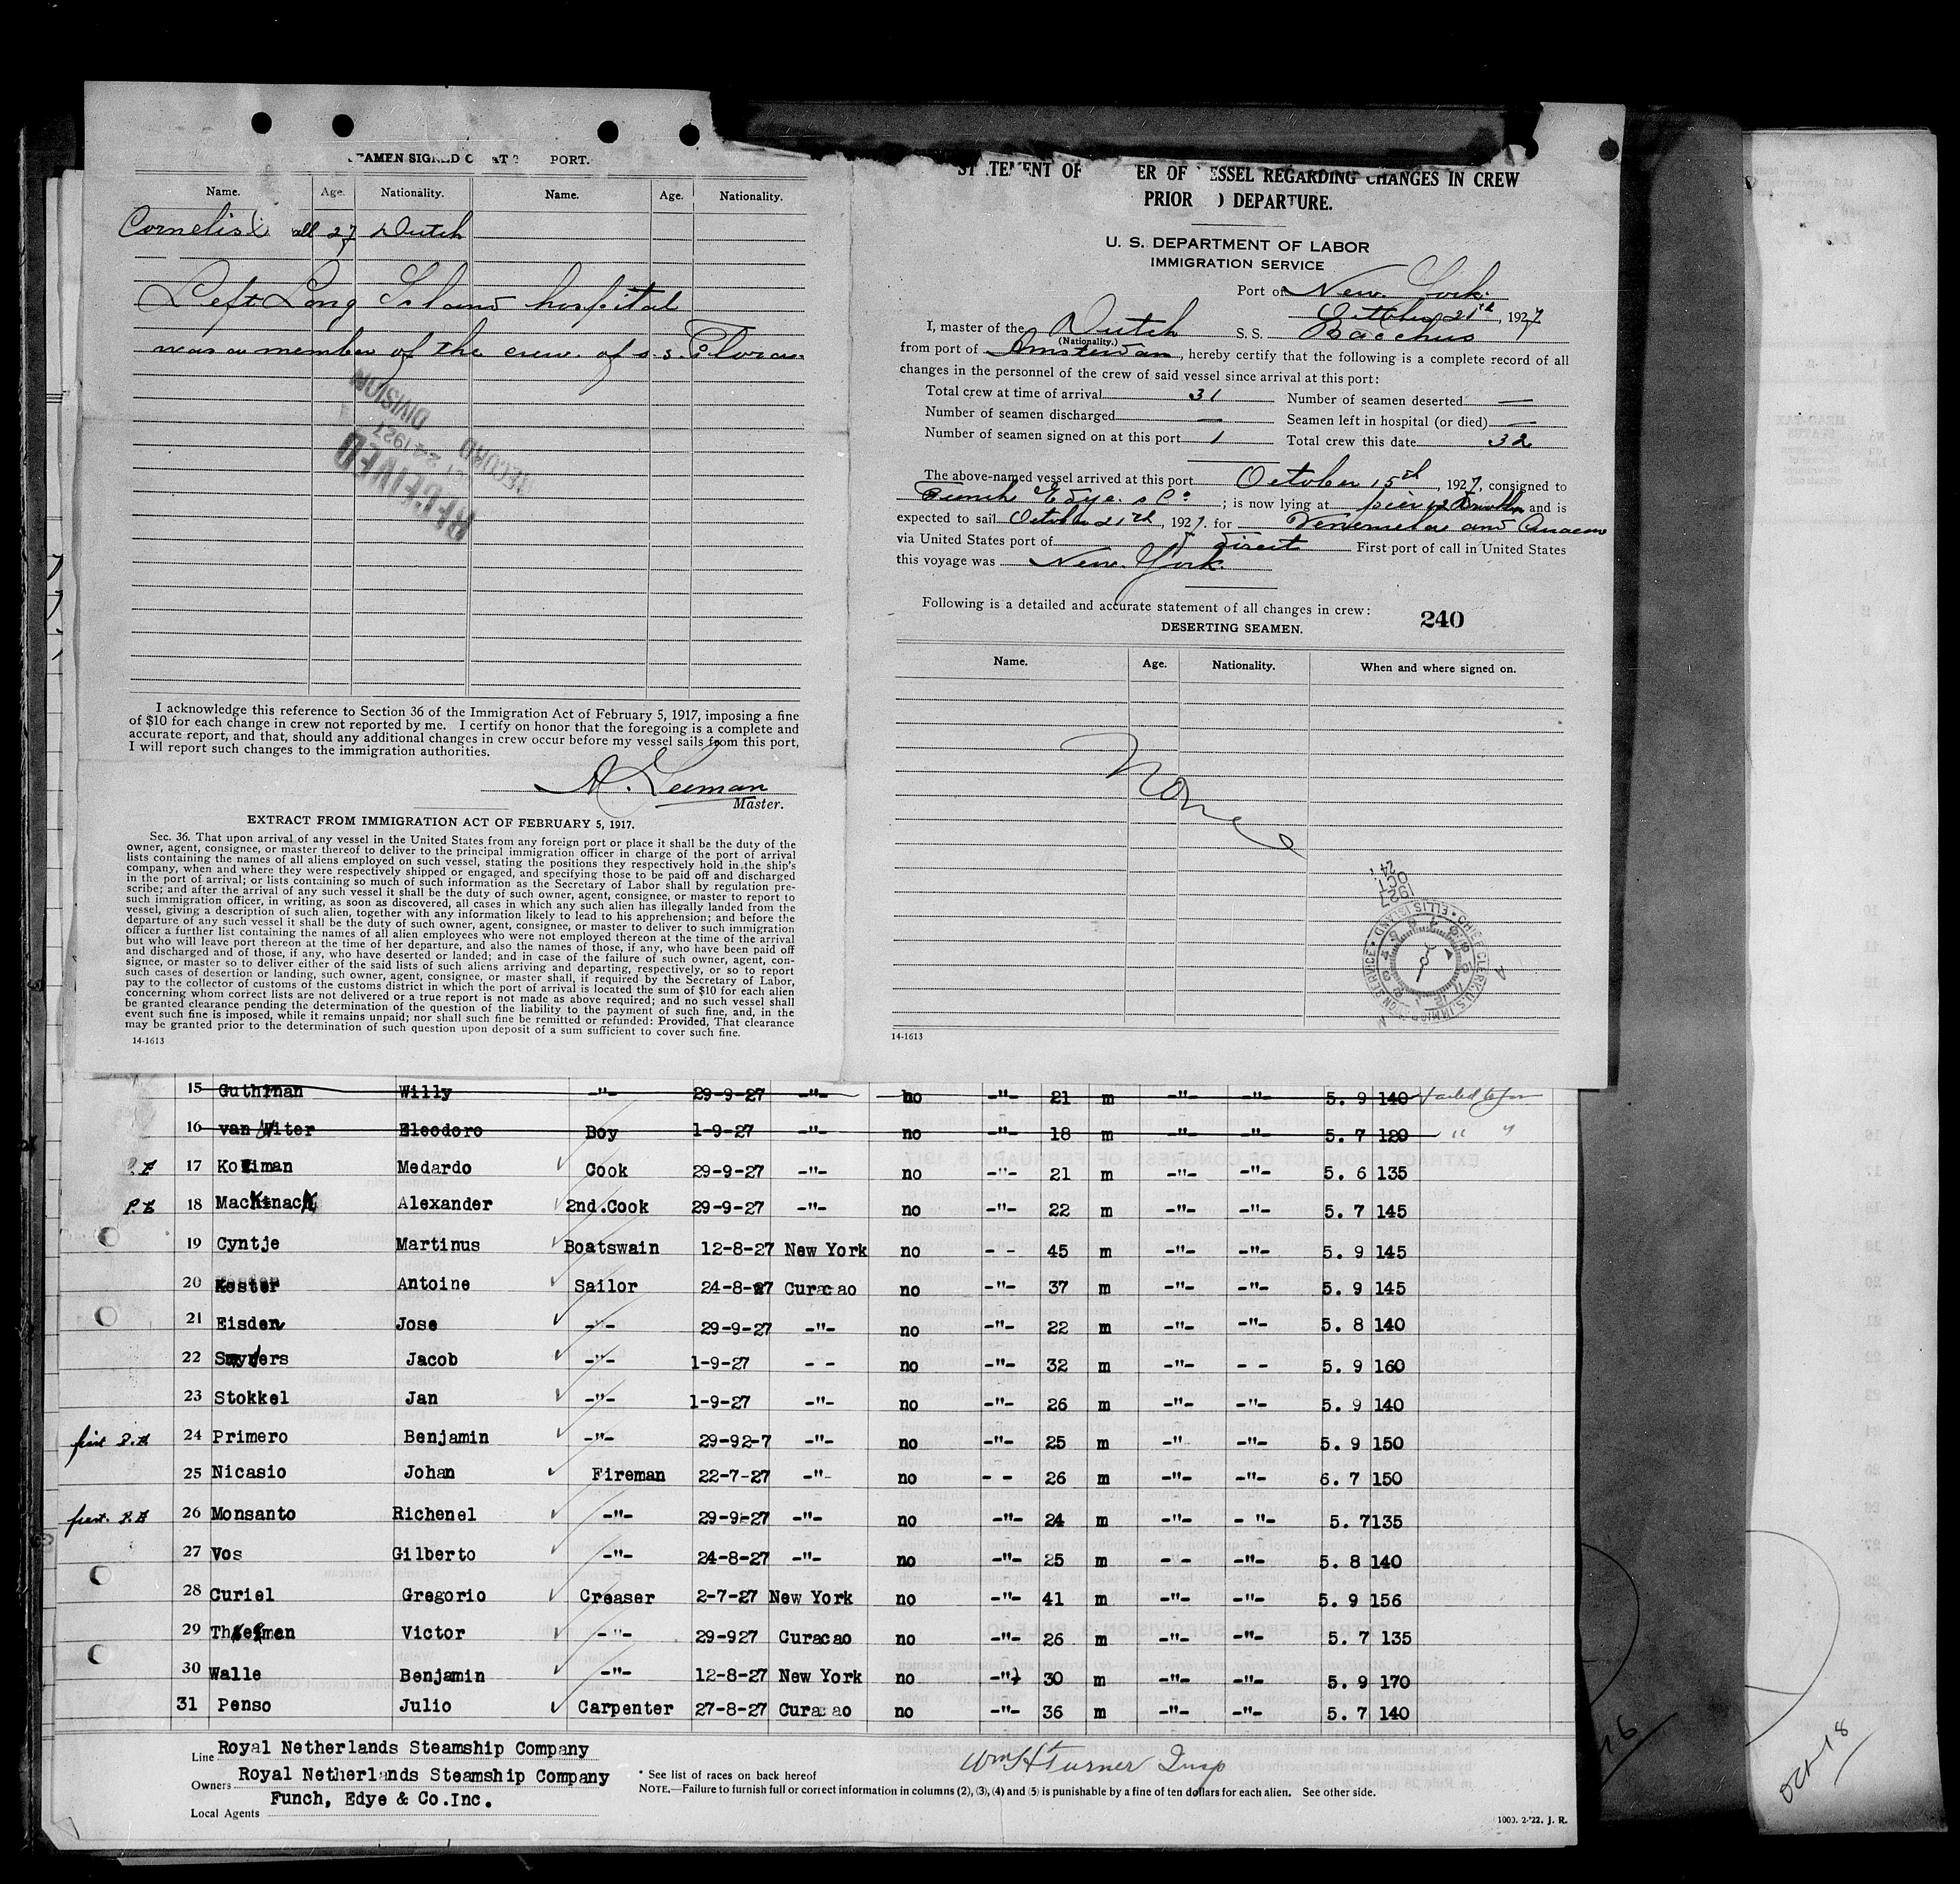 SEAMEN SIGNED O AT PORT.
Name. Age. Nationality. Name. Age. Nationality.
Cornelis 27 Dutch
Left Long Island hospital
was a member of the crew of s.s. Flora
RECEIVED
24 1927
RECORD DIVISION
I acknowledge this reference to Section 36 of the Immigration Act of February 5, 1917, imposing a fine
of $10 for each change in crew not reported by me. I certify on honor that the foregoing is a complete and
accurate report, and that, should any additional changes in crew occur before my vessel sails from this port,
I will report such changes to the immigration authorities.
A. Leeman
Master.
EXTRACT FROM IMMIGRATION ACT OF FEBRUARY 5, 1917.
Sec. 36. That upon arrival of any vessel in the United States from any foreign port or place it shall be the duty of the
owner, agent, consignee, or master thereof to deliver to the principal immigration officer in charge of the port of arrival
lists containing the names of all aliens employed on such vessel, stating the positions they respectively hold in the ship's
company, when and where they were respectively shipped or engaged, and specifying those to be paid off and discharged
in the port of arrival; or lists containing so much of such information as the Secretary of Labor shall by regulation pre-
scribe; and after the arrival of any such vessel it shall be the duty of such owner, agent, consignee, or master to report to
such immigration officer, in writing, as soon as discovered, all cases in which any such alien has illegally landed from the
vessel, giving a description of such alien, together with any information likely to lead to his apprehension; and before the
departure of any such vessel it shall be the duty of such owner, agent, consignee, or master to deliver to such immigration
officer a further list containing the names of all alien employees who were not employed thereon at the time of the arrival
but who will leave port thereon at the time of her departure, and also the names of those, if any, who have been paid off
and discharged and of those, if any, who have deserted or landed; and in case of the failure of such owner, agent, con-
signee, or master so to deliver either of the said lists of such aliens arriving and departing, respectively, or so to report
such cases of desertion or landing, such owner, agent, consignee, or master shall, if required by the Secretary of Labor,
pay to the collector of customs of the customs district in which the port of arrival is located the sum of $10 for each alien
concerning whom correct lists are not delivered or a true report is not made as above required; and no such vessel shall
be granted clearance pending the determination of the question of the liability to the payment of such fine, and, in the
event such fine is imposed, while it remains unpaid; nor shall such fine be remitted or refunded: Provided, That clearance
may be granted prior to the determination of such question upon deposit of a sum sufficient to cover such fine.
14-1613
STATEMENT OF ER OF VESSEL REGARDING CHANGES IN CREW
PRIOR DEPARTURE.
U. S. DEPARTMENT OF LABOR
IMMIGRATION SERVICE
Port of New York
October 21th, 1927
I, master of the Dutch S. S. Bacchus
(Nationality.)
from port of Amsterdam, hereby certify that the following is a complete record of all
changes in the personnel of the crew of said vessel since arrival at this port:
Total crew at time of arrival 31 Number of seamen deserted —
Number of seamen discharged — Seamen left in hospital (or died) —
Number of seamen signed on at this port 1 Total crew this date 32
The above-named vessel arrived at this port October 15th, 1927, consigned to
Funch Edye & Co; is now lying at pier 12 and is
expected to sail October 21th, 1927. for Venezuela and Curacao
via United States port of direct First port of call in United States
this voyage was New York.
Following is a detailed and accurate statement of all changes in crew:
240
DESERTING SEAMEN.
Name. Age. Nationality. When and where signed on.
None
1927 OCT 24
CHIEF CLERK, U.S. IMMIGRATION SERVICE • ELLIS ISLAND •
14-1613
15 Guthman Willy -"- 29-9-27 -"- no -"- 21 m -"- -"- 5. 9 140 Failed to join
16 van Witer Eleodoro Boy 1-9-27 -"- no -"- 18 m -"- -"- 5. 7 120 " "
P.E 17 Koeiman Medardo Cook 29-9-27 -"- no -"- 21 m -"- -"- 5. 6 135
P.E 18 Mackinack Alexander 2nd.Cook 29-9-27 -"- no -"- 22 m -"- -"- 5. 7 145
19 Cyntje Martinus Boatswain 12-8-27 New York no - - 45 m -"- -"- 5. 9 145
20 Kester Antoine Sailor 24-8-27 Curacao no -"- 37 m -"- -"- 5. 9 145
21 Eisden Jose -"- 29-9-27 -"- no -"- 22 m -"- -"- 5. 8 140
22 Snyders Jacob -"- 1-9-27 - - no -"- 32 m -"- - - 5. 9 160
23 Stokkel Jan -"- 1-9-27 -"- no -"- 26 m -"- -"- 5. 9 140
first P.E 24 Primero Benjamin -"- 29-92-7 -"- no -"- 25 m -"- -"- 5. 9 150
25 Nicasio Johan Fireman 22-7-27 -"- no - - 26 m -"- -"- 6. 7 150
first P.E 26 Monsanto Richenel -"- 29-9-27 -"- no -"- 24 m -"- -"- 5. 7 135
27 Vos Gilberto -"- 24-8-27 -"- no -"- 25 m - - -"- 5. 8 140
28 Curiel Gregorio Greaser 2-7-27 New York no -"- 41 m -"- -"- 5. 9 156
29 Victor -"- 29-927 Curacao no -"- 26 m -"- -"- 5. 7 135
30 Walle Benjamin -"- 12-8-27 New York no -"- 30 m -"- -"- 5. 9 170
31 Penso Julio Carpenter 27-8-27 Curacao no -"- 36 m -"- -"- 5. 7 140
Line Royal Netherlands Steamship Company
Owners Royal Netherlands Steamship Company
Local Agents Funch, Edye & Co.Inc.
* See list of races on back hereof
Wm H Turner Insp
NOTE.—Failure to furnish full or correct information in columns (2), (3), (4) and (5) is punishable by a fine of ten dollars for each alien. See other side.
1000. 2-'22. J. R.
Oct-18